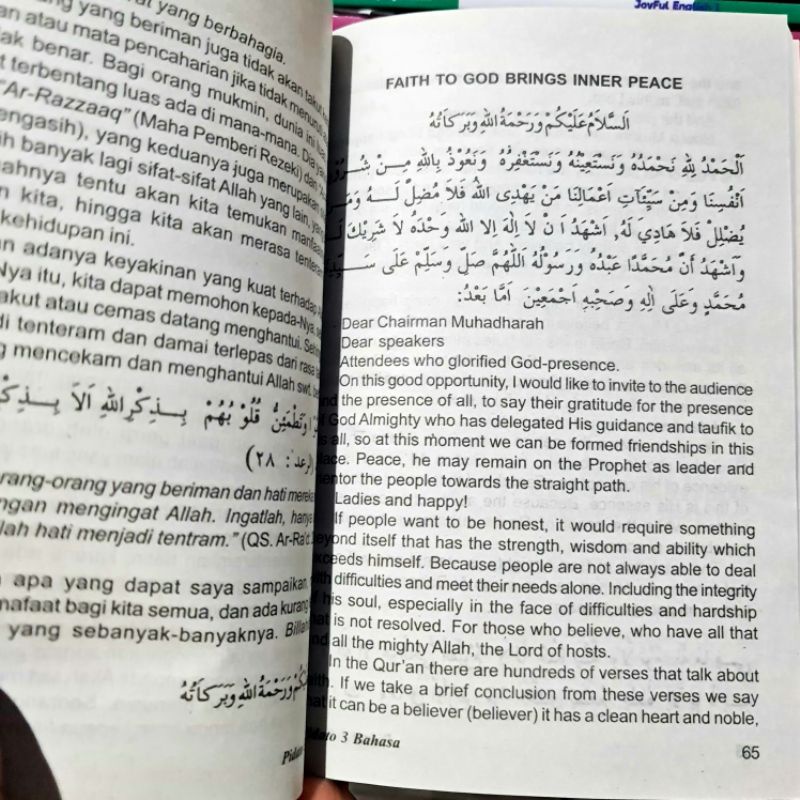 JoyFul English
yang berbahagia.
yang beriman juga tidak akan takut
atau mata pencaharian jika tidak menuruti
benar. Bagi orang mukmin, dunia ini
terbentang luas ada di mana-mana. Dia
"Ar-Razzaaq" (Maha Pemberi Rezeki) dan
engasih), yang keduanya juga merupakan
ih banyak lagi sifat-sifat Allah yang lain,
ahnya tentu akan kita temukan manfaat
n kita, hingga kita akan merasa tenteram
kehidupan ini.
an adanya keyakinan yang kuat terhadap
Nya itu, kita dapat memohon kepada-Nya
akut atau cemas datang menghantui.
di tenteram dan damai terlepas dari rasa
g mencekam dan menghantui Allah swt.
قُلُوْبُهُمْ بِذِكْرِاللهِ اَلَا بِذِكْرِ
(الرعد: ٢٨)
rang-orang yang beriman dan hati mereka
ngan mengingat Allah. Ingatlah, hanya
lah hati menjadi tentram." (QS. Ar-Ra'd
apa yang dapat saya sampaikan,
nafaat bagi kita semua, dan ada kurang
yang sebanyak-banyaknya.
وَرَحْمَةُ اللهِ وَبَرَكَاتُهُ
FAITH TO GOD BRINGS INNER PEACE
اَلسَّلَامُ عَلَيْكُمْ وَرَحْمَةُ اللهِ وَبَرَكَاتُهُ
اَلْحَمْدُ لِلّٰهِ نَحْمَدُهُ وَنَسْتَعِيْنُهُ وَنَسْتَغْفِرُهُ وَنَعُوْذُ بِاللهِ مِنْ شُرُوْرِ
اَنْفُسِنَا وَمِنْ سَيِّئَاتِ اَعْمَالِنَا مَنْ يَهْدِى اللهُ فَلَا مُضِلَّ لَهُ وَمَنْ
يُضْلِلْ فَلَا هَادِيَ لَهُ, اَشْهَدُ اَنْ لَا اِلٰهَ اِلَّا اللهُ وَحْدَهُ لَا شَرِيْكَ لَهُ
وَاَشْهَدُ اَنَّ مُحَمَّدًا عَبْدُهُ وَرَسُوْلُهُ اَللّٰهُمَّ صَلِّ وَسَلِّمْ عَلَى سَيِّدِنَا
مُحَمَّدٍ وَعَلَى اٰلِهِ وَصَحْبِهِ اَجْمَعِيْنَ اَمَّا بَعْدُ:
Dear Chairman Muhadharah
Dear speakers
Attendees who glorified God-presence.
On this good opportunity, I would like to invite to the audience
and the presence of all, to say their gratitude for the presence
of God Almighty who has delegated His guidance and taufik to
us all, so at this moment we can be formed friendships in this
place. Peace, he may remain on the Prophet as leader and
mentor the people towards the straight path.
Ladies and happy!
If people want to be honest, it would require something
beyond itself that has the strength, wisdom and ability which
exceeds himself. Because people are not always able to deal
with difficulties and meet their needs alone. Including the integrity
of his soul, especially in the face of difficulties and hardship
that is not resolved. For those who believe, who have all that
and all the mighty Allah, the Lord of hosts.
In the Qur'an there are hundreds of verses that talk about
faith. If we take a brief conclusion from these verses we say
that it can be a believer (believer) it has a clean heart and noble,
Pidato 3 Bahasa
65